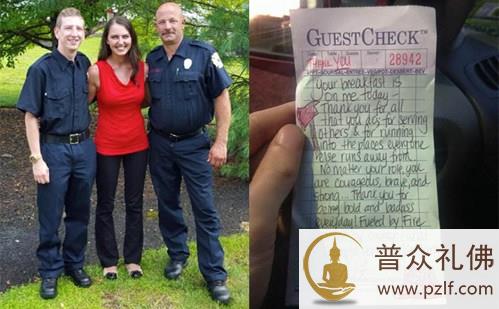 GUESTCHECK™
Thank you 28942
Your breakfast is
on me today -
Thank you for all
that you do; for serving
others & for running
into the places everyone
else runs away from.
No matter your role, you
are courageous, brave, and
strong... Thank you for
being bold and badass
everyday! Fueled by Fire
普众礼佛
www.pzlf.com